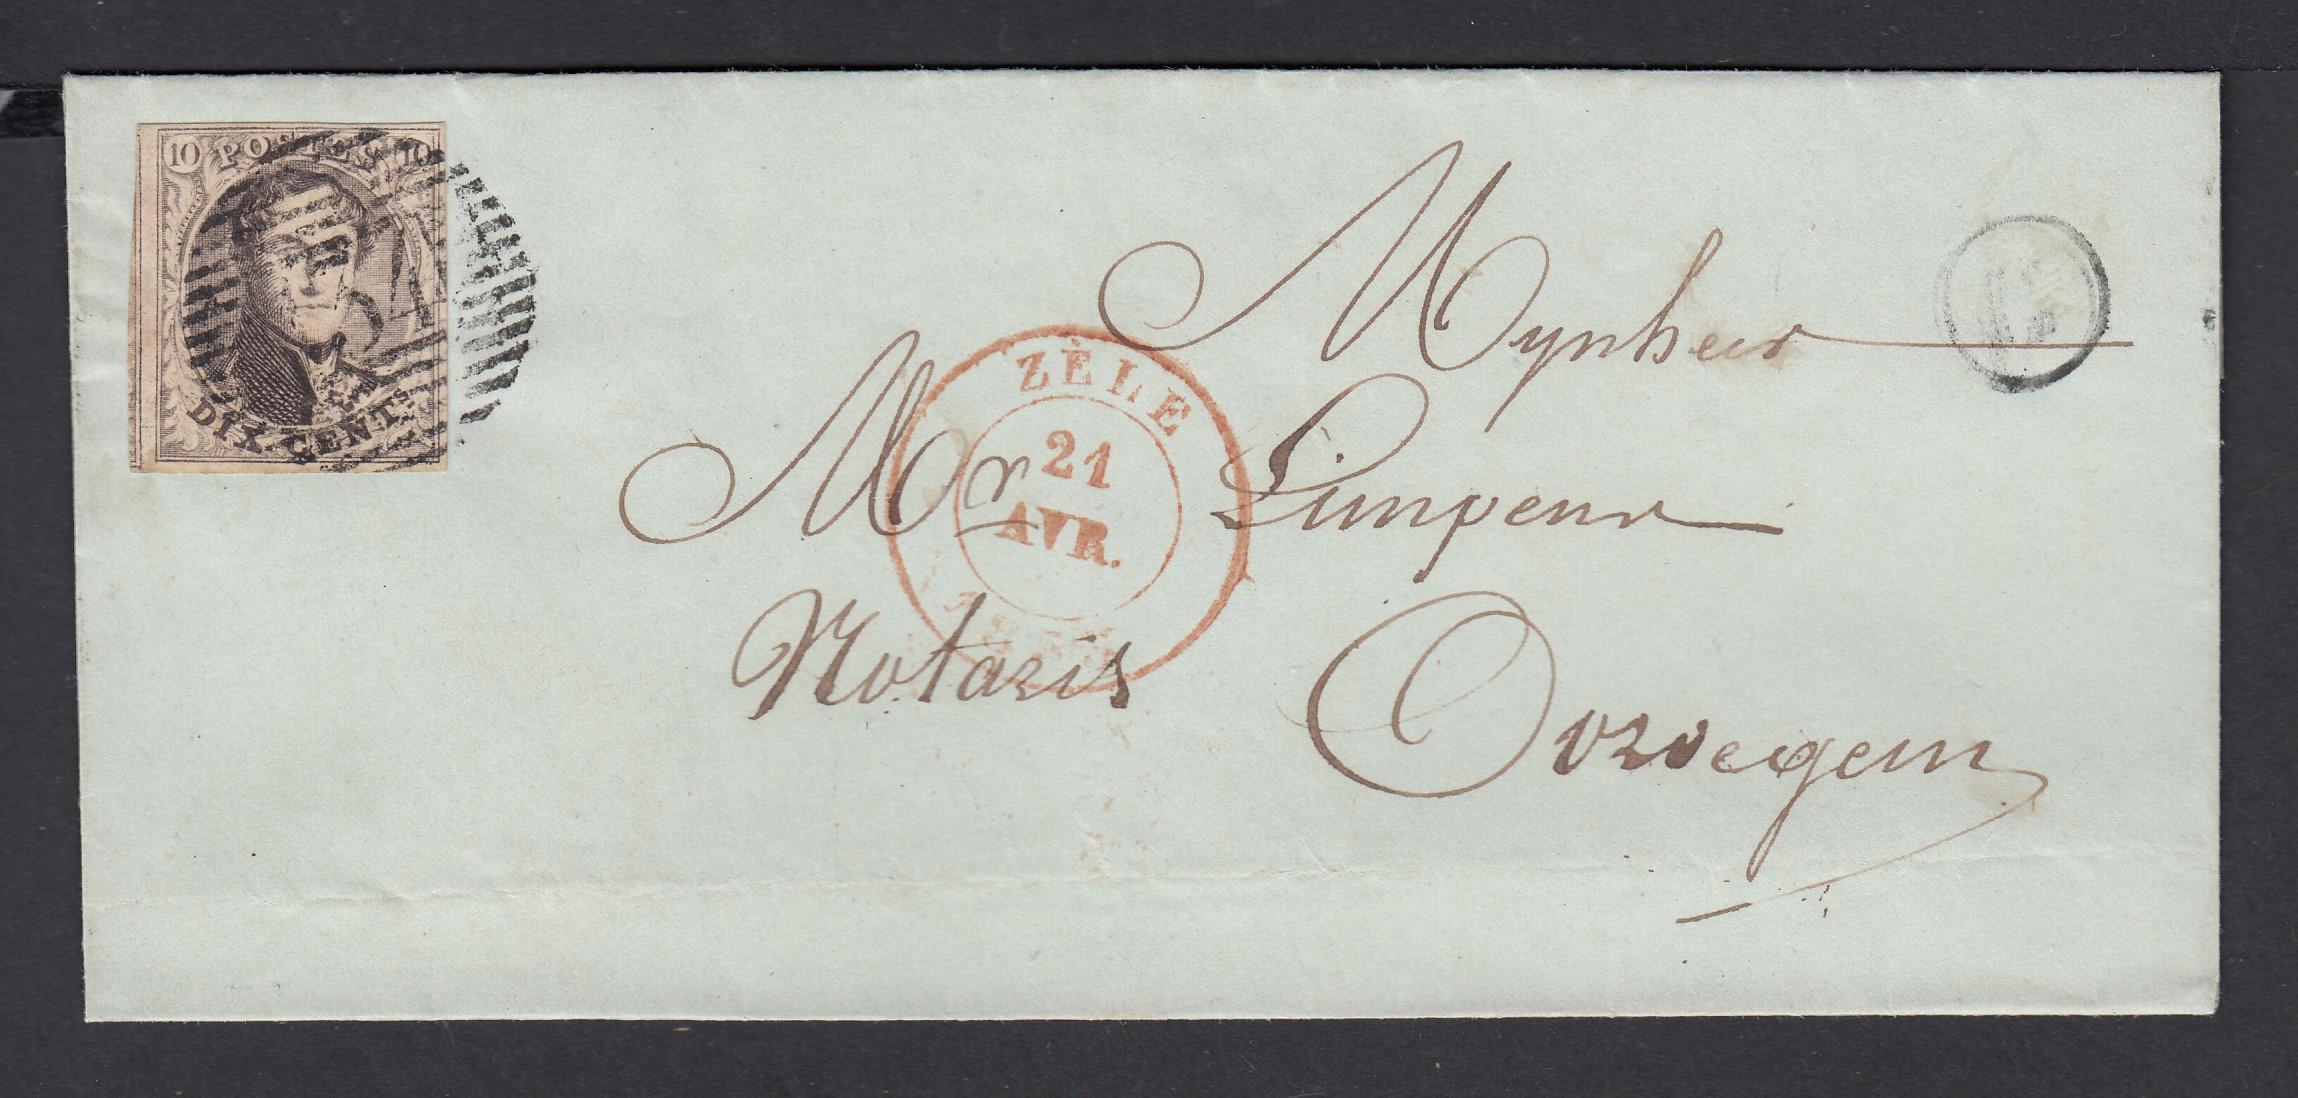 10 POSTES 10
DIX CENTS.
Mynheer
ZÈLE
21
AVR.
Mr Limpens
Notaris
Overvegem